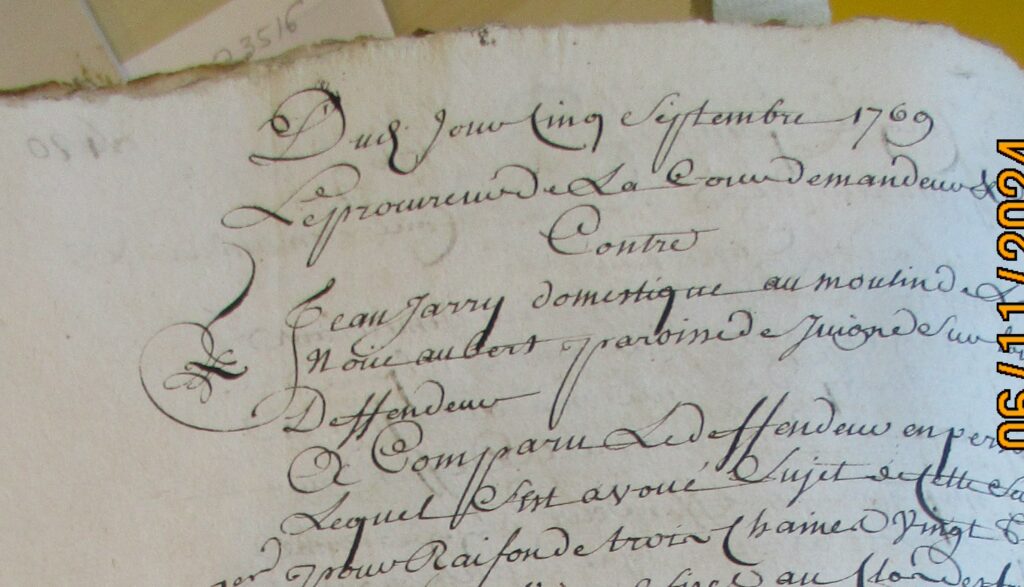 3516
Dud Jour Cinq Septembre 1769
Le procureur de La Cour demandeur &
Contre
Jean Jarry domestique au moulin de
Noüe aubert paroisse de Juigné Sur
Deffendeur
A Comparu Led deffendeur en per
Lequel S'est avoué Sujet de Cette
pour Raison de trois Chaines Vingt
au
06/11/2024